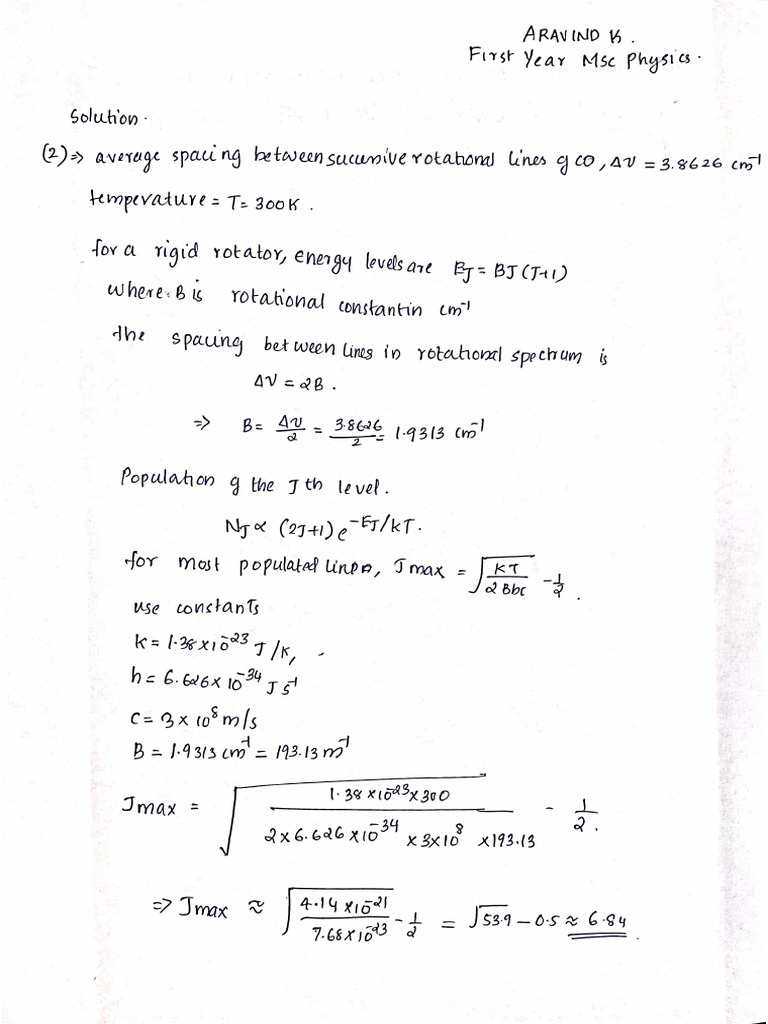 ARAVIND K.
First Year Msc Physics.
Solution.
(2)⇒ average spacing between succesive rotational lines of CO, ΔV = 3.8626 cm⁻¹
temperature = T = 300K.
for a rigid rotator, energy levels are E_J = BJ(J+1)
where B is rotational constant in cm⁻¹
the spacing between lines in rotational spectrum is
ΔV = 2B.
⇒ B = ΔV/2 = 3.8626/2 = 1.9313 cm⁻¹
Population of the J th level.
N_J ∝ (2J+1) e^(-E_J/kT).
for most populated lines, J max = √(KT/2Bhc) - 1/2.
use constants
K = 1.38×10⁻²³ J/K,
h = 6.626×10⁻³⁴ J s⁻¹
C = 3×10⁸ m/s
B = 1.9313 cm⁻¹ = 193.13 m⁻¹
J max = √(1.38×10⁻²³×300 / 2×6.626×10⁻³⁴ ×3×10⁸ ×193.13) - 1/2.
⇒ J max ≈ √(4.14×10⁻²¹/7.68×10⁻²³) - 1/2 = √53.9 - 0.5 ≈ 6.84.